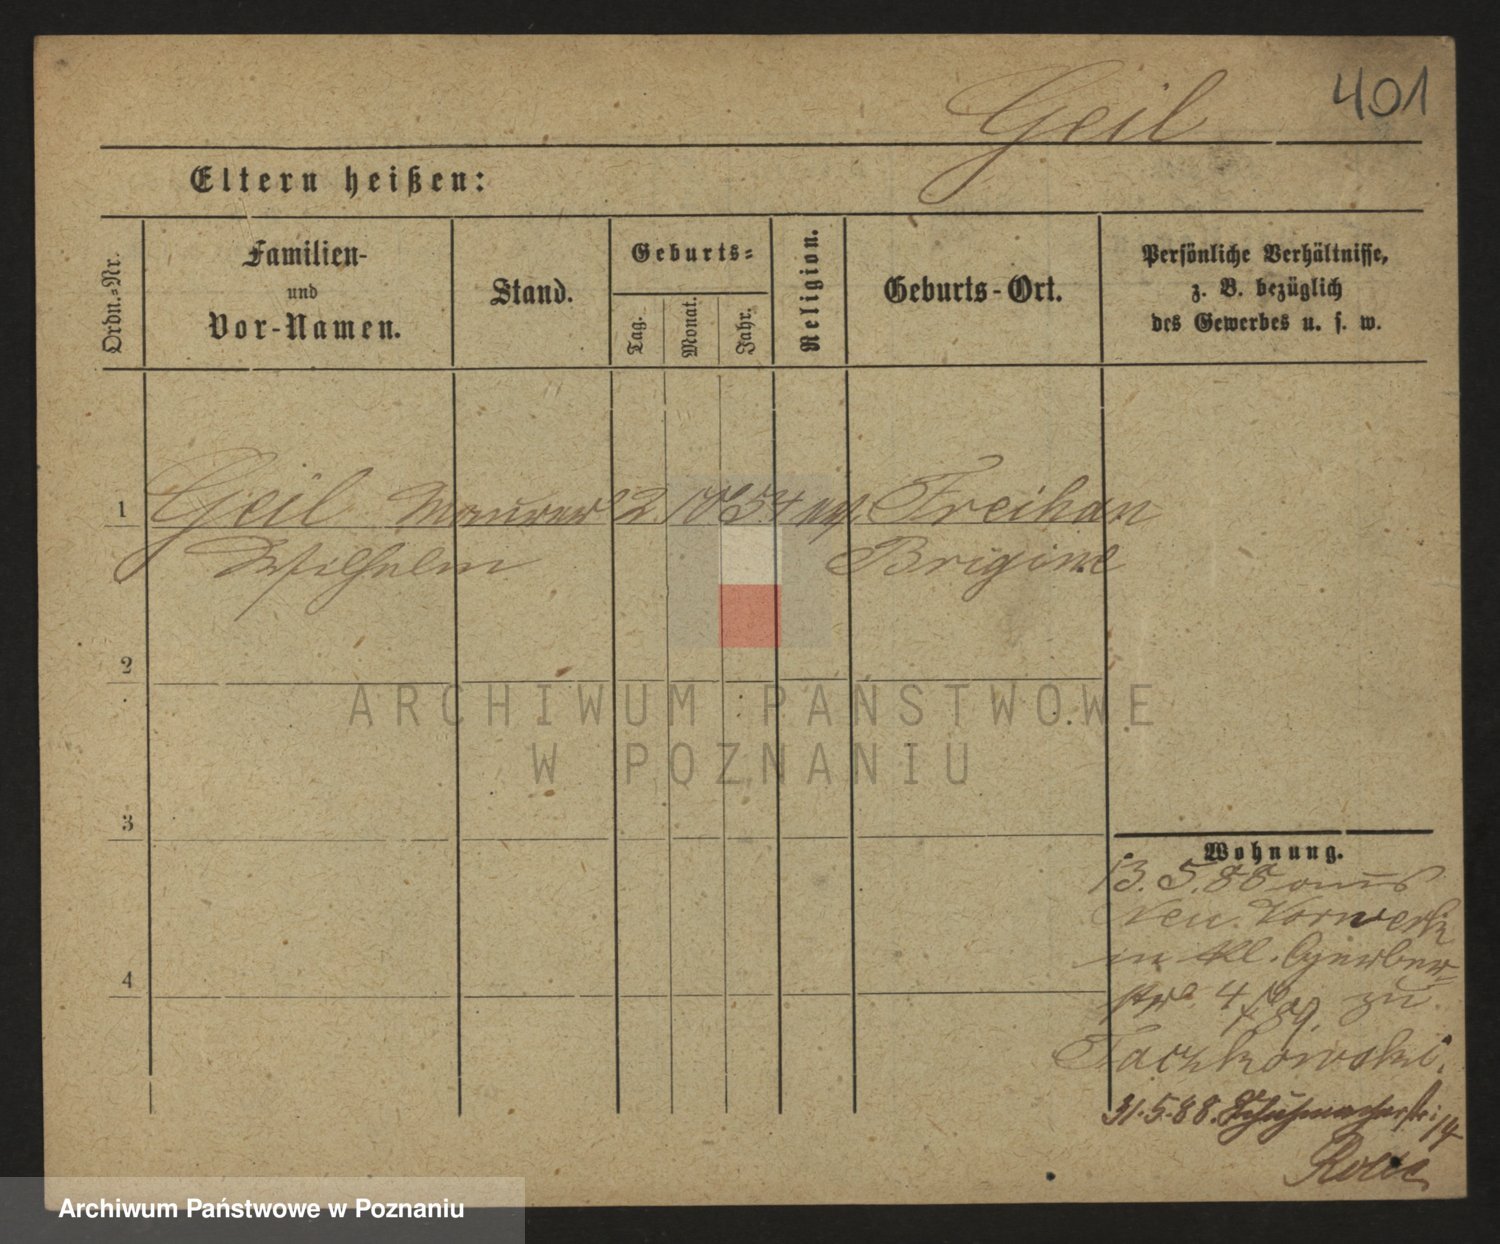 401
Geil
Eltern heißen:
Ordn.-Nr.
Familien-
und
Vor-Namen.
Stand.
Geburts-
Tag.
Monat.
Jahr.
Religion.
Geburts-Ort.
Persönliche Verhältnisse,
z. B. bezüglich
des Gewerbes u. s. w.
1 Geil Maurer 2. 10 54 ev. Freihan
Wilhelm Brigine
2
3
4
Wohnung.
13. 5. 88 aus
Neu. Vorwerk
in Kl. Gerber-
str. 4 89. zu
Taczkowski.
31. 5. 88. Schuhmacherstr. 14
ARCHIWUM PAŃSTWOWE
W POZNANIU
Archiwum Państwowe w Poznaniu